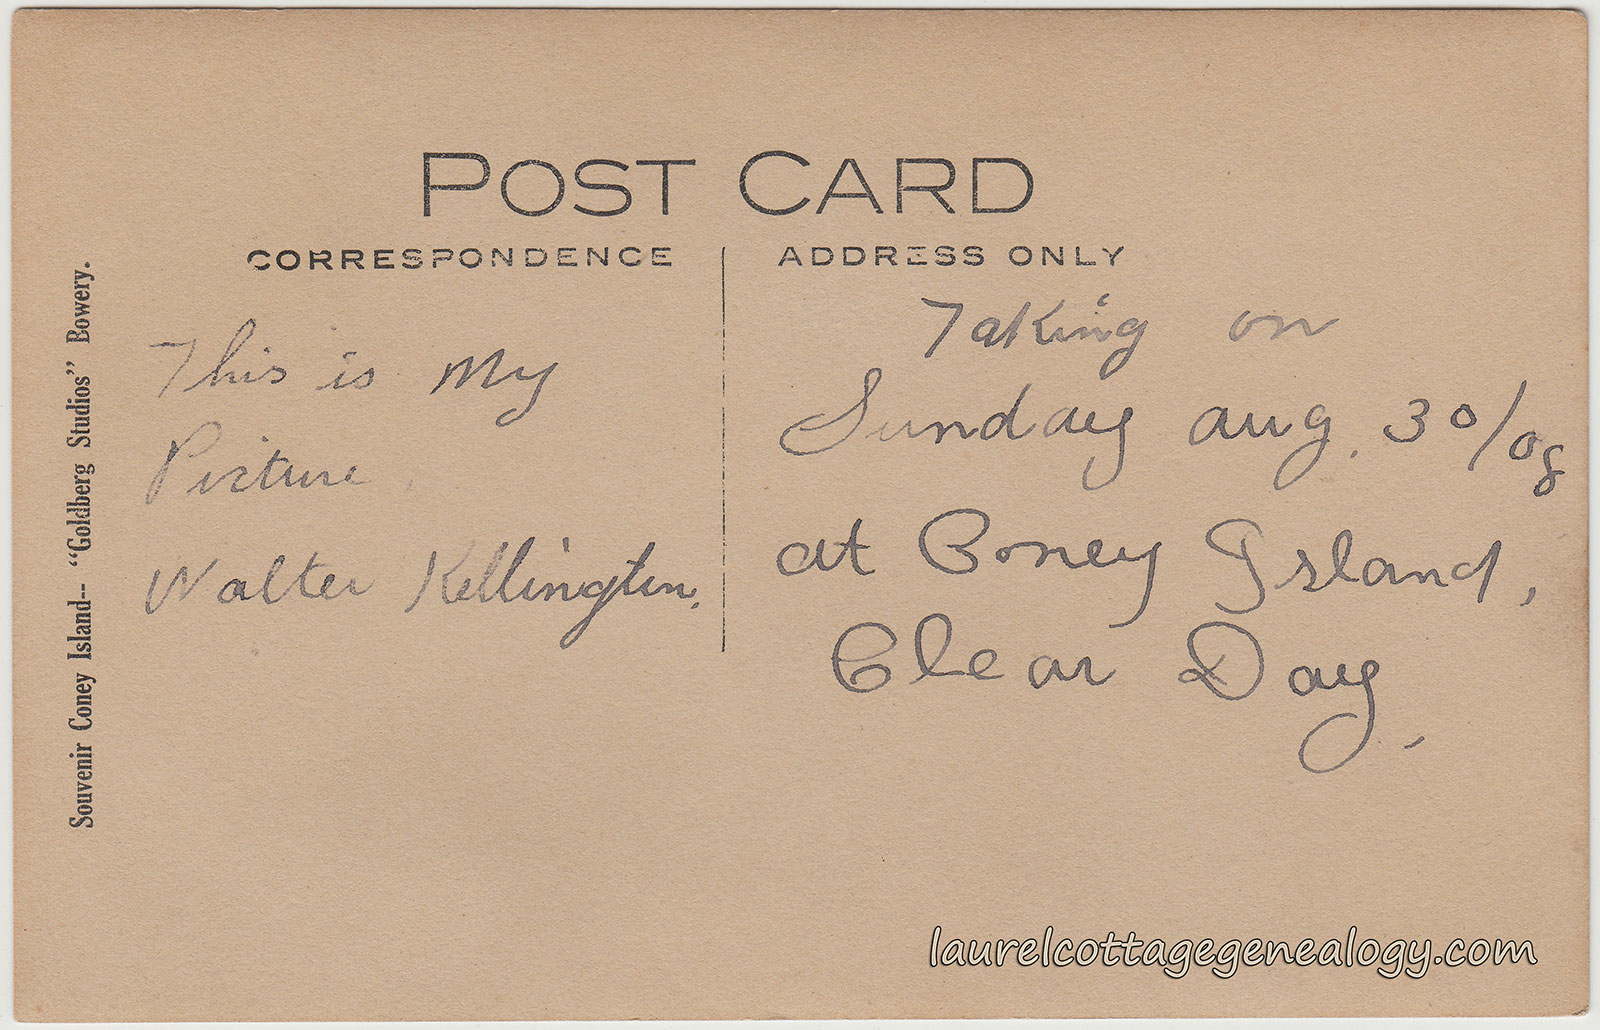 POST CARD
CORRESPONDENCE
ADDRESS ONLY
Souvenir Coney Island-- "Goldberg Studios" Bowery.
This is My
Picture.
Walter Kellington.
Taking on
Sunday aug. 30/08
at Coney Island,
Clear Day,
laurelcottagegenealogy.com